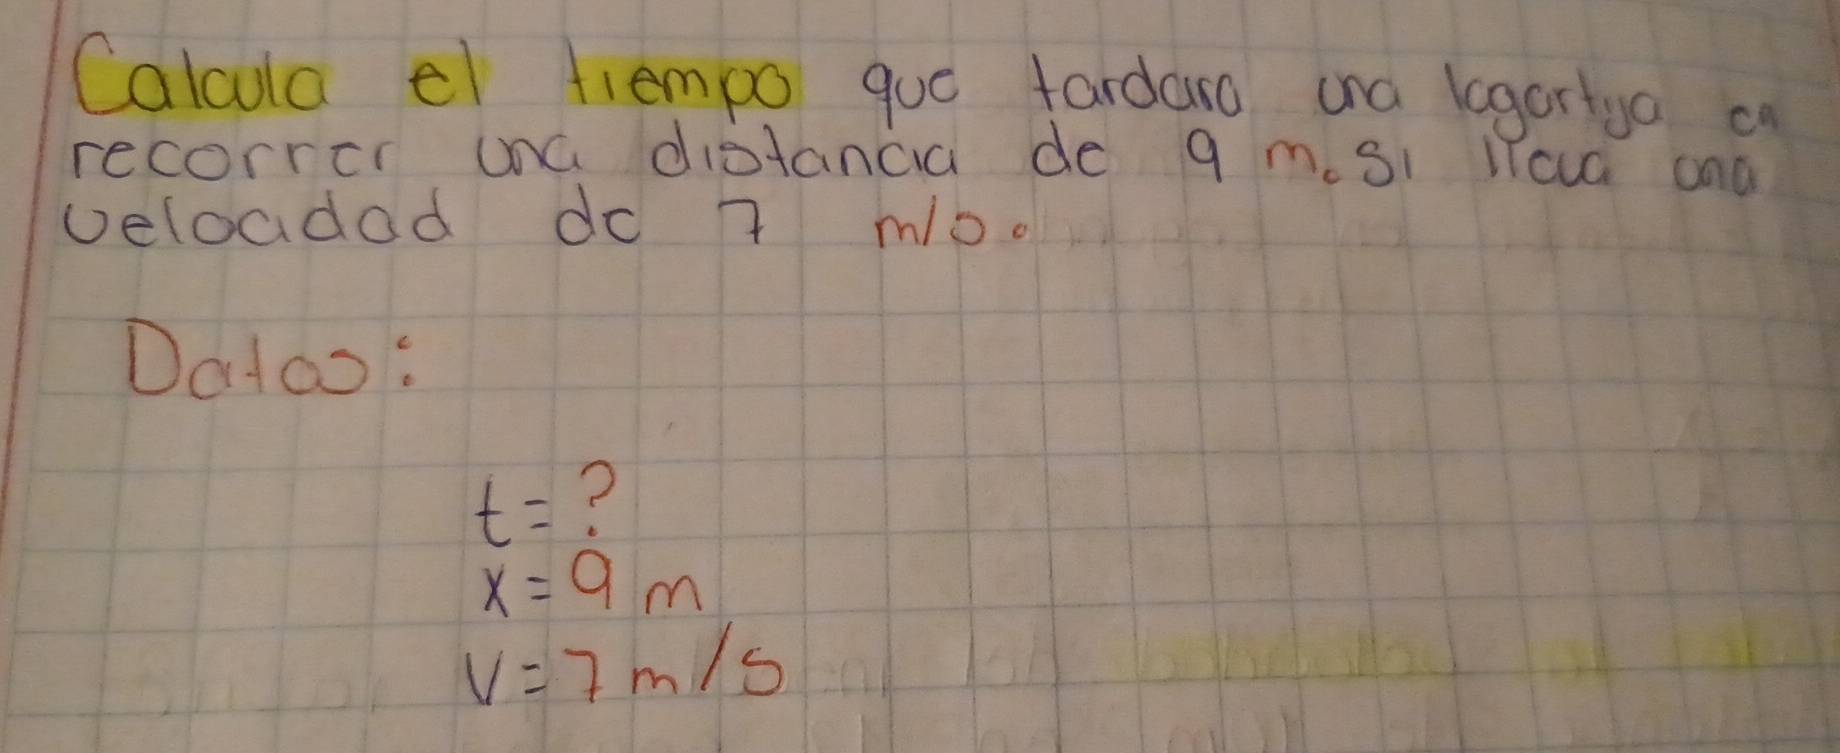 Calcula el tiempo que tardara una lagartija en
recorrer una distancia de 9 m. Si lleva una
velocidad de 7 m/s.
Datos:
t = ?
x = 9 m
v = 7 m/s